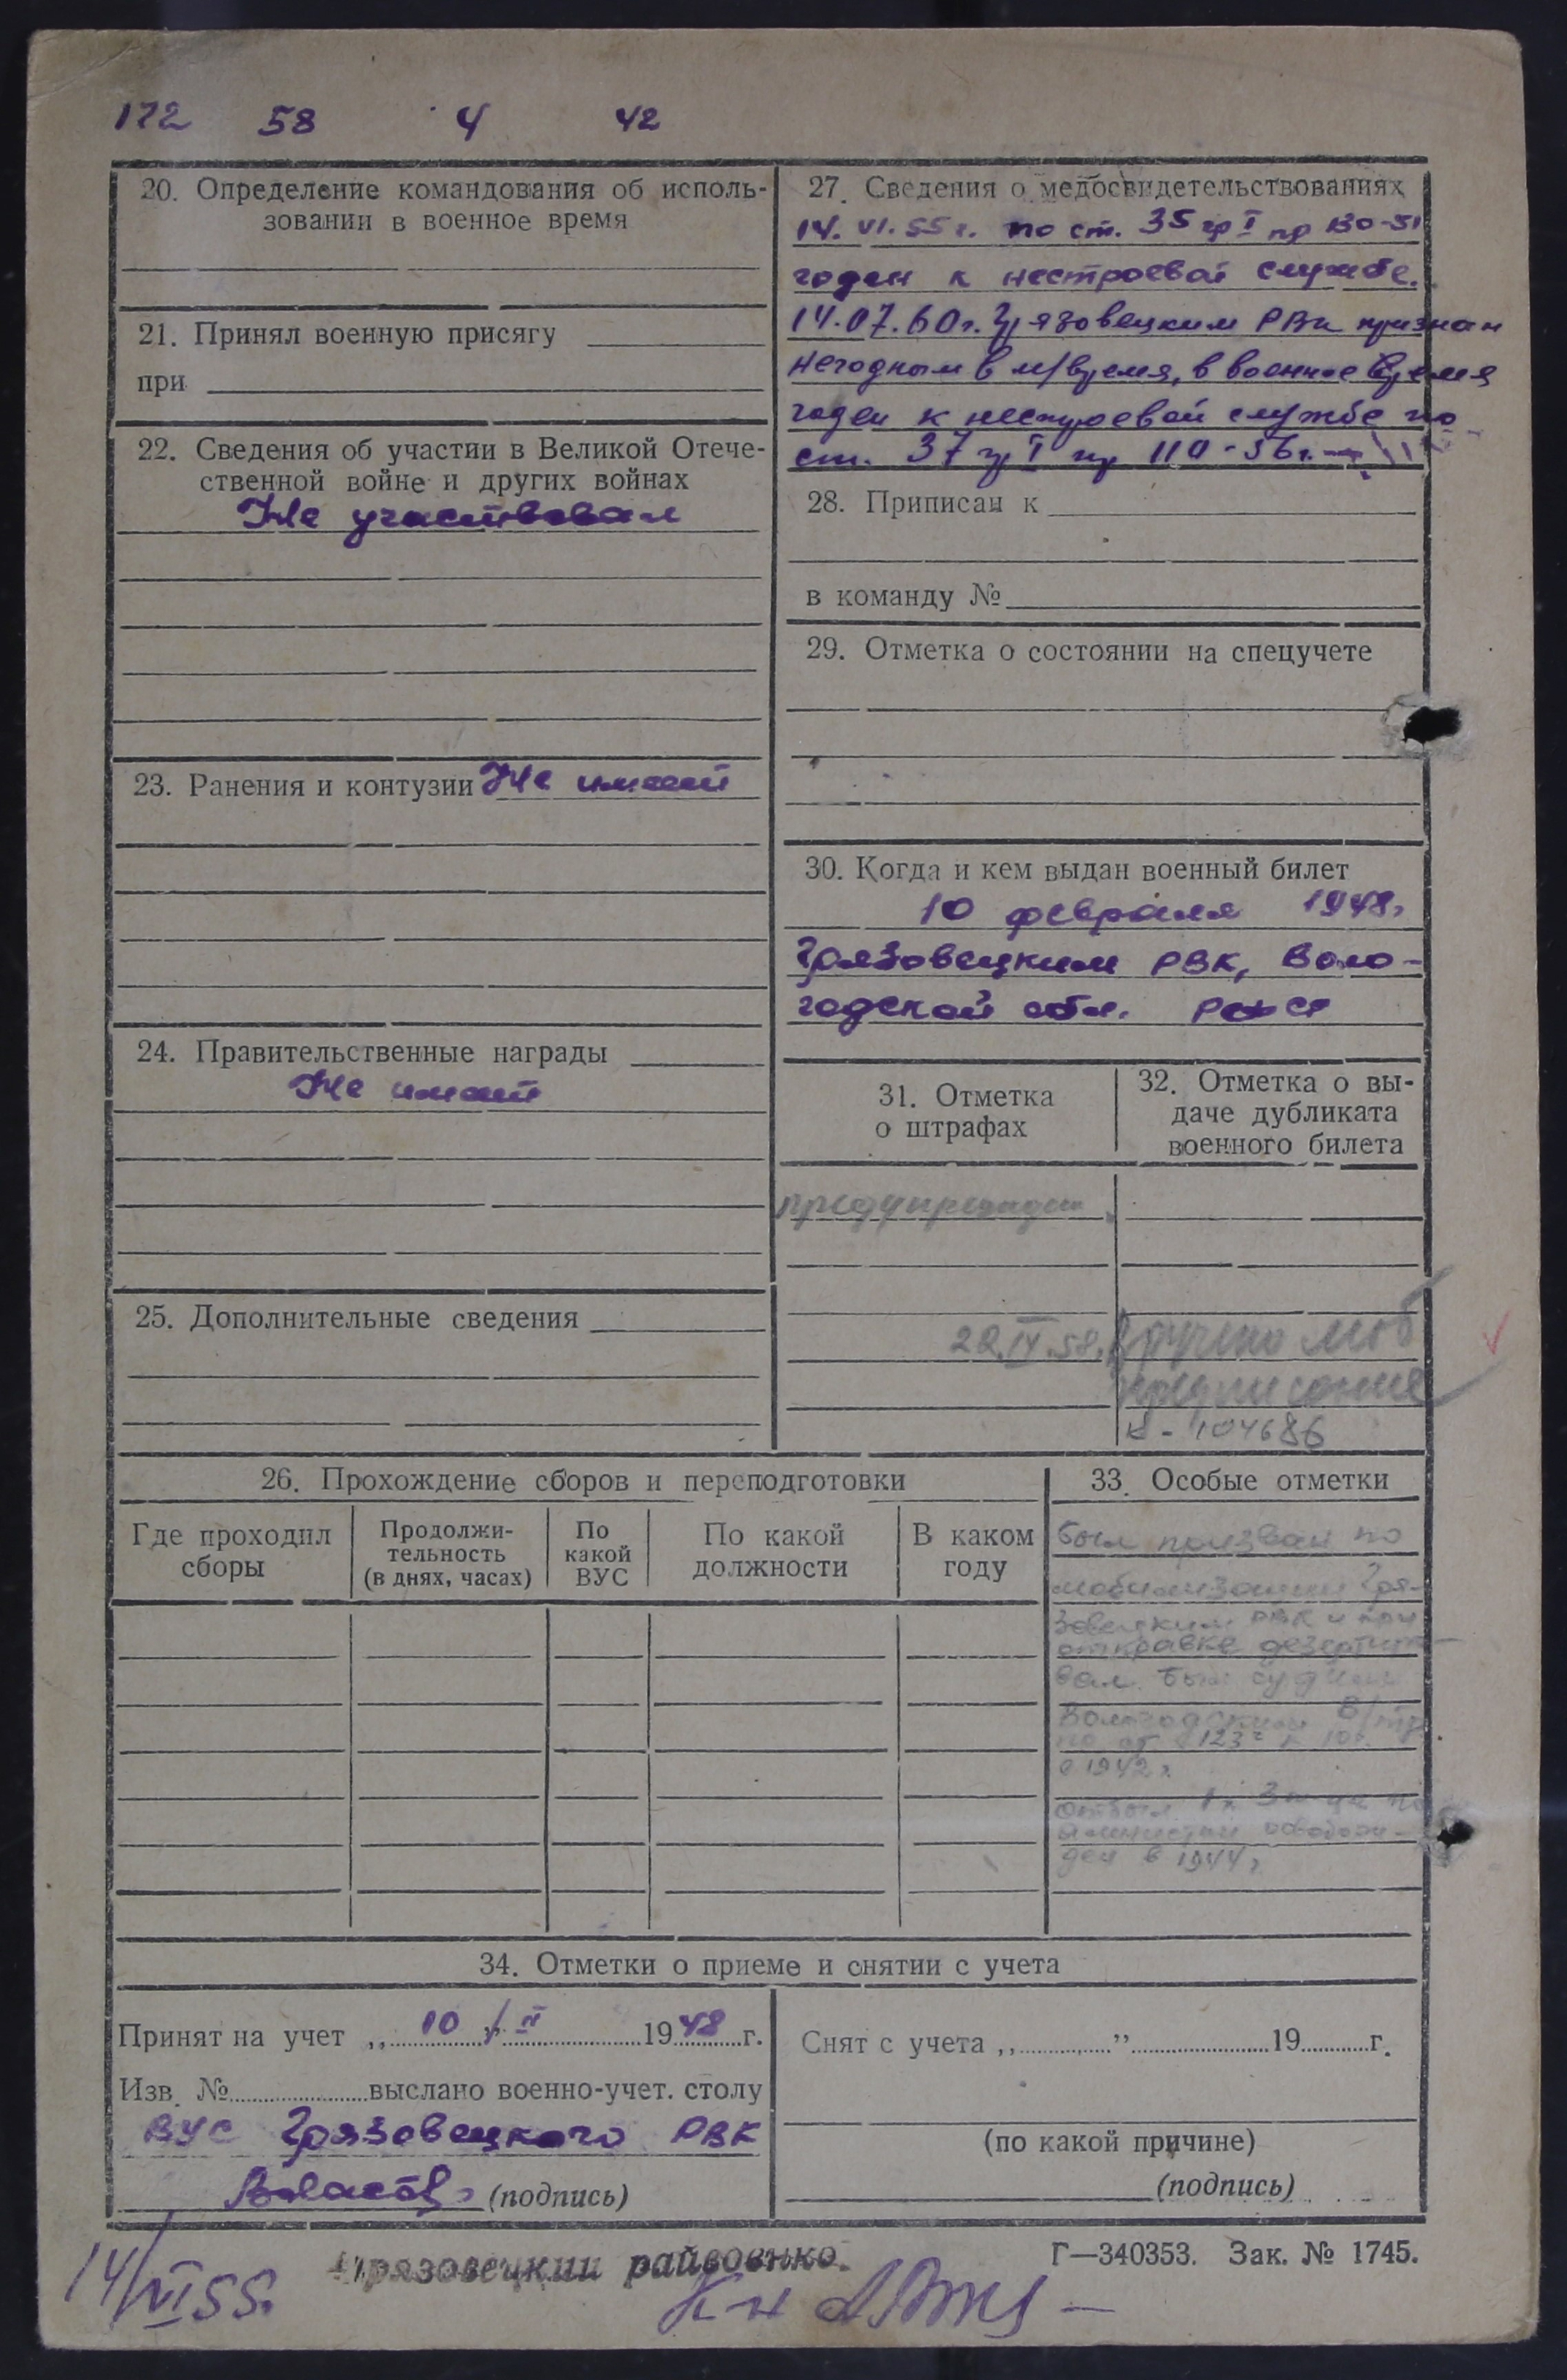 172 58 4 42
20. Определение командования об исполь-
зовании в военное время
21. Принял военную присягу
при
22. Сведения об участии в Великой Отече-
ственной войне и других войнах
Не участвовал
23. Ранения и контузии Не имеет
24. Правительственные награды
Не имеет
25. Дополнительные сведения
27. Сведения о медосвидетельствованиях
14. VI. 55 г. по ст. 35 гр I пр 130-51
годен к нестроевой службе.
14.07.60 г. Грязовецким РВк признан
негодным в м/время, в военное время
годен к нестроевой службе по
ст. 37 гр I пр 110-56 г.
28. Приписан к
в команду №
29. Отметка о состоянии на спецучете
30. Когда и кем выдан военный билет
10 февраля 1948 г
Грязовецким РВК, Воло-
годской обл. РСФСР
31. Отметка
о штрафах
32. Отметка о вы-
даче дубликата
военного билета
предупрежден
22.IV.58. Вручено моб
предписание
104686
26. Прохождение сборов и переподготовки
Где проходил
сборы
Продолжи-
тельность
(в днях, часах)
По
какой
ВУС
По какой
должности
В каком
году
33. Особые отметки
был призван по
мобилизации Гря-
зовецким РВК и при
отправке дезертиро-
вал. Был судим
Вологодским В/тр
по 123 к 10
в 1942 г.
отбыл 1 г. 3 м-ца по
амнистии освобож-
ден в 1944 г.
34. Отметки о приеме и снятии с учета
Принят на учет „ 10 " II 1948 г.
Изв. № выслано военно-учет. столу
ВУС Грязовецкого РВК
(подпись)
Снят с учета „ " 19 г.
(по какой причине)
(подпись)
Г—340353. Зак. № 1745.
14/VI 55.
Грязовецкий райвоенко.